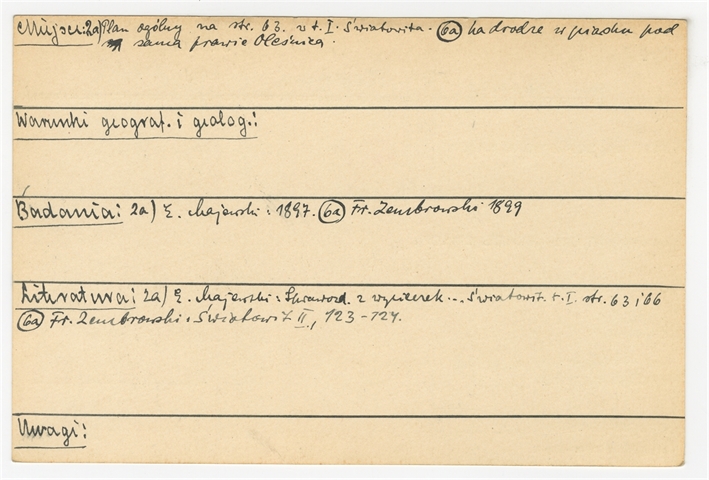 Miejsc: 2a) Plan ogólny na str. 63. w t. I. Światowita. (6a) Na drodze w piasku pod
samą prawie Oleśnicą.
Warunki geograf. i geolog.:
Badania: 2a) E. Majewski: 1897. (6a) Fr. Zembrowski 1899
Literatura: 2a) E. Majewski: Sprawozd. z wycieczek... Światowit. t. I. str. 63 i 66
(6a) Fr. Zembrowski: Światowit II, 123-124.
Uwagi: